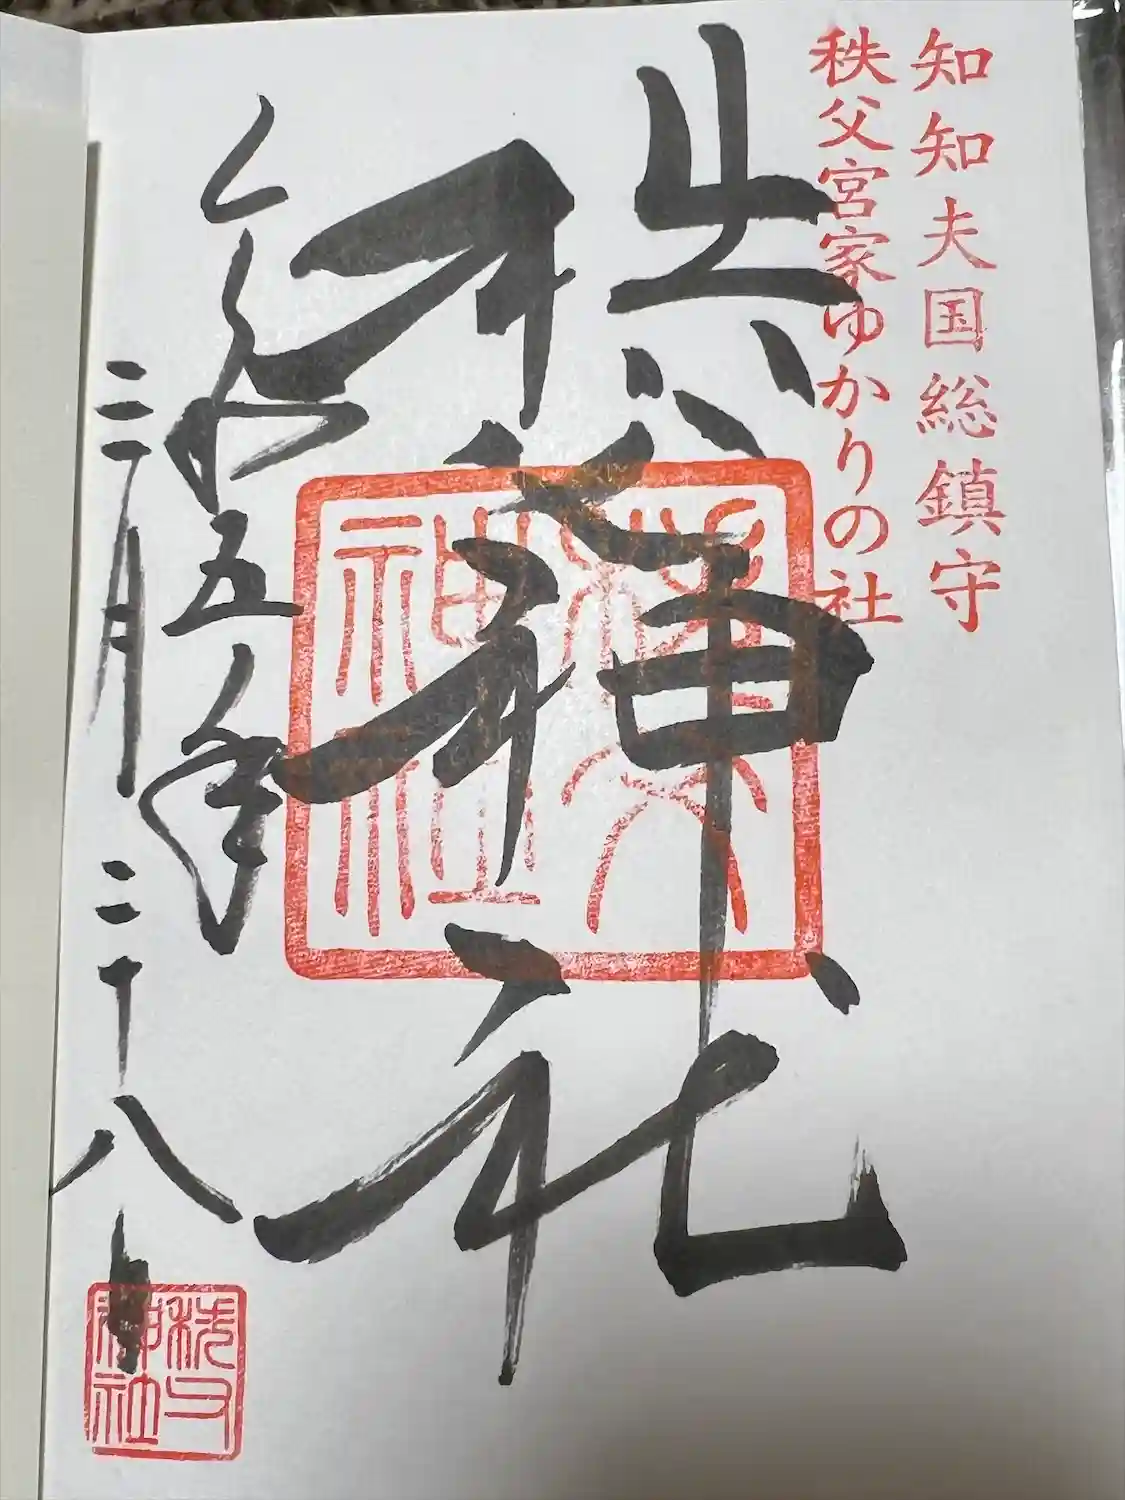 知知夫国総鎮守
秩父宮家ゆかりの社
秩父神社
秩父神社
令和五年
二月二十八日
秩父神社